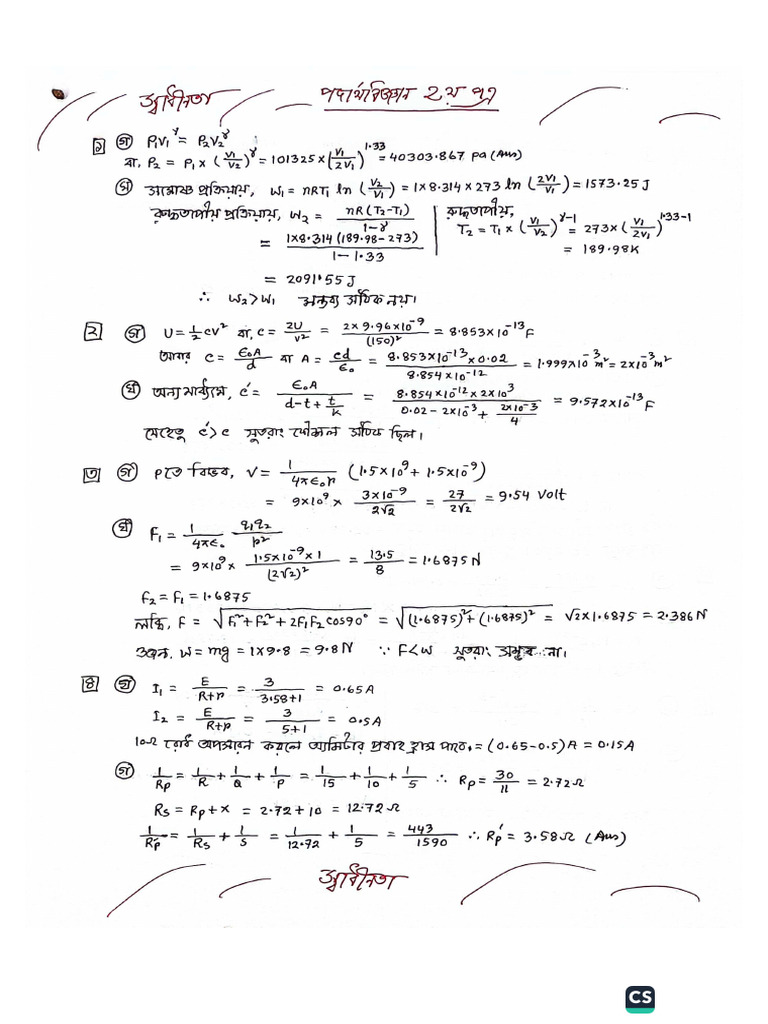 স্বাধীনতা পদার্থবিজ্ঞান ২য় পত্র
১ গ P₁V₁^γ = P₂V₂^γ
বা, P₂ = P₁ × (V₁/V₂)^γ = 101325 × (V₁/2V₁)^1.33 = 40303.867 Pa (Ans)
ঘ সমোষ্ণ প্রক্রিয়ায়, W₁ = nRT₁ ln (V₂/V₁) = 1×8.314×273 ln (2V₁/V₁) = 1573.25 J
রুদ্ধতাপীয় প্রক্রিয়ায়, W₂ = nR(T₂-T₁)/1-γ
= 1×8.314(189.98-273)/1-1.33
= 2091.55 J
রুদ্ধতাপীয়,
T₂ = T₁ × (V₁/V₂)^γ-1 = 273×(V₁/2V₁)^1.33-1
= 189.98K
∴ W₂>W₁ মন্তব্য সঠিক নয়।
২ গ U = 1/2 CV² বা, C = 2U/V² = 2×9.96×10^-9/(150)² = 8.853×10^-13 F
আবার C = ϵ₀A/d বা A = Cd/ϵ₀ = 8.853×10^-13×0.02/8.854×10^-12 = 1.999×10^-3 m² = 2×10^-3 m²
ঘ অন্য মাধ্যমে, C′ = ϵ₀A/d-t+t/k = 8.854×10^-12×2×10^3/0.02-2×10^-3+2×10^-3/4 = 9.572×10^-13 F
যেহেতু C′>C সুতরাং কৌশল সঠিক ছিল।
৩ গ P তে বিভব, V = 1/4πϵ₀r (1.5×10^9+1.5×10^-9)
= 9×10^9 × 3×10^-9/2√2 = 27/2√2 = 9.54 Volt
ঘ F₁ = 1/4πϵ₀ q₁q₂/r²
= 9×10^9 × 1.5×10^-9×1/(2√2)² = 13.5/8 = 1.6875 N
F₂ = F₁ = 1.6875
লব্ধি, F = √F₁²+F₂²+2F₁F₂cos90° = √(1.6875)²+(1.6875)² = √2×1.6875 = 2.386 N
ওজন, W = mg = 1×9.8 = 9.8 N ∵ F<W সুতরাং সম্ভব না।
৪ ঘ I₁ = E/R+r = 3/3.58+1 = 0.65A
I₂ = E/R+r = 3/5+1 = 0.5A
10Ω রোধ অপসারন করলে অ্যামিটার প্রবাহ হ্রাস পাবে, = (0.65-0.5)A = 0.15A
গ 1/Rp = 1/R + 1/Q + 1/P = 1/15 + 1/10 + 1/5 ∴ Rp = 30/11 = 2.72Ω
Rs = Rp+x = 2.72+10 = 12.72 Ω
1/Rp′ = 1/Rs + 1/S = 1/12.72 + 1/5 = 443/1590 ∴ Rp′ = 3.58Ω (Ans)
স্বাধীনতা
CS